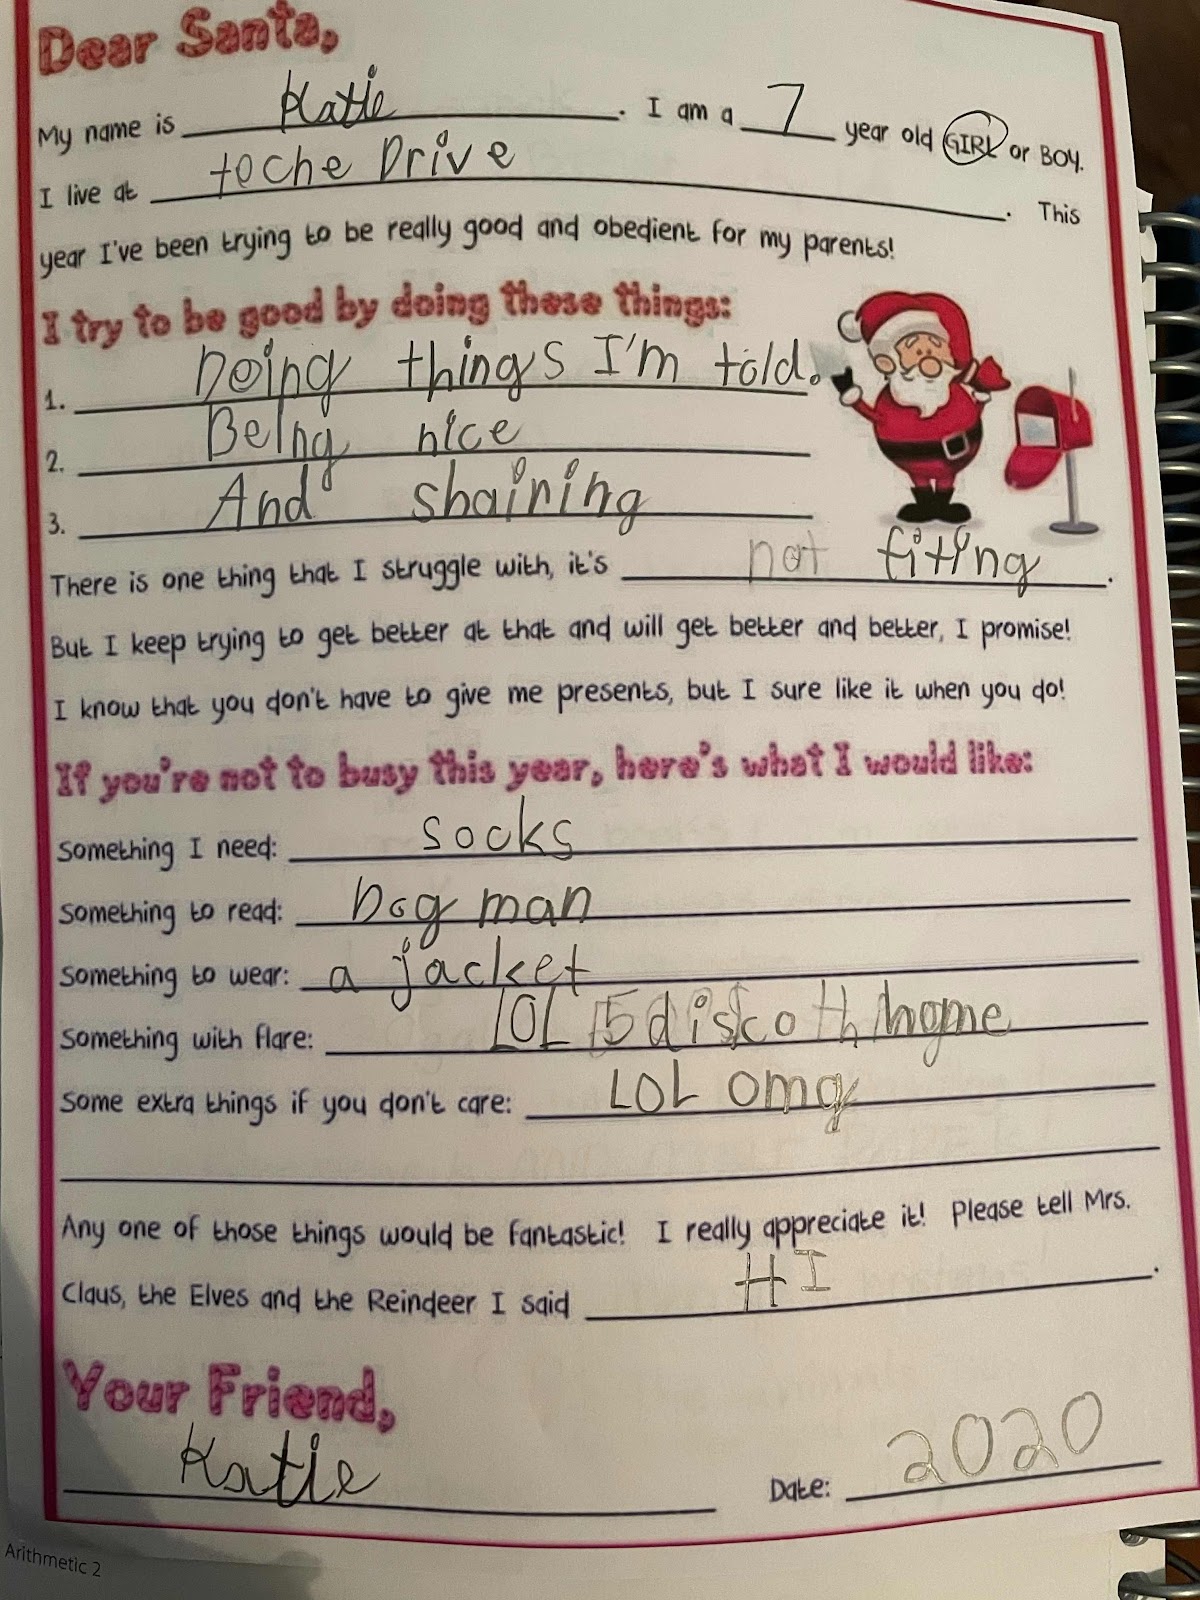 Dear Santa,
My name is Katie. I am a 7 year old GIRL or BOY.
I live at toche Drive. This
year I've been trying to be really good and obedient for my parents!
I try to be good by doing these things:
1. Doing things I'm told.
2. Being nice
3. And shaining
There is one thing that I struggle with, it's not fiting.
But I keep trying to get better at that and will get better and better, I promise!
I know that you don't have to give me presents, but I sure like it when you do!
If you're not to busy this year, here's what I would like:
Something I need: socks
Something to read: Dog man
Something to wear: a jacket
Something with flare: LOL disco home
Some extra things if you don't care: LOL omg
Any one of those things would be fantastic! I really appreciate it! Please tell Mrs.
Claus, the Elves and the Reindeer I said HI.
Your Friend,
Katie Date: 2020
Arithmetic 2